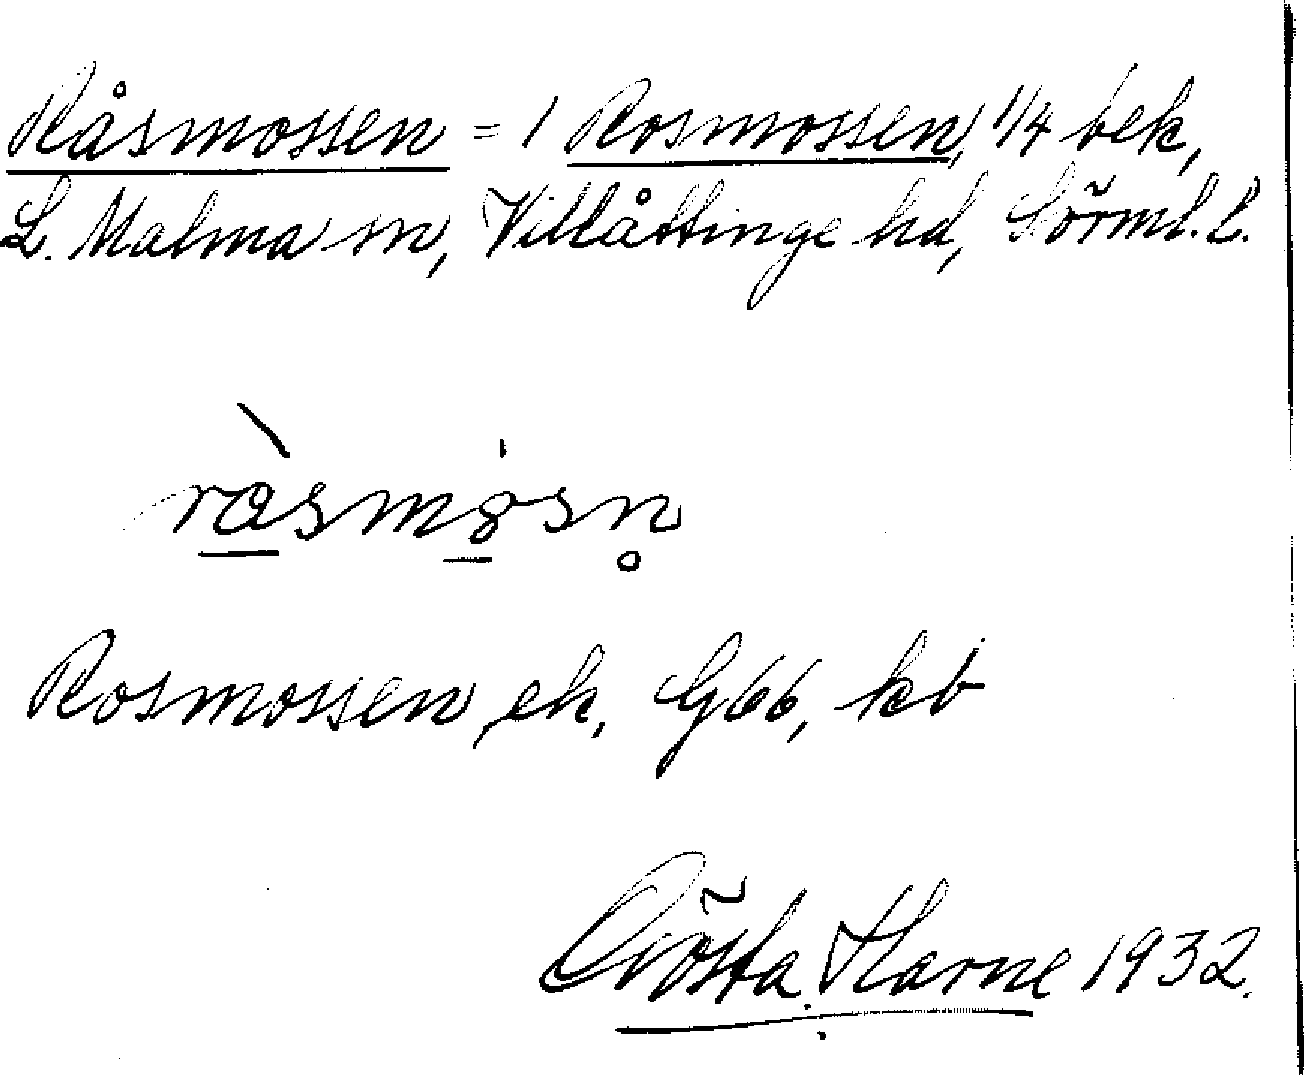 Råsmossen = 1 Rosmossen, 1/4 bek,
L. Malma sn, Villåttinge hd, Sörml. l.
ràsmosn̥
Rosmossen, ek, G66, kb
Gösta Harne 1932.